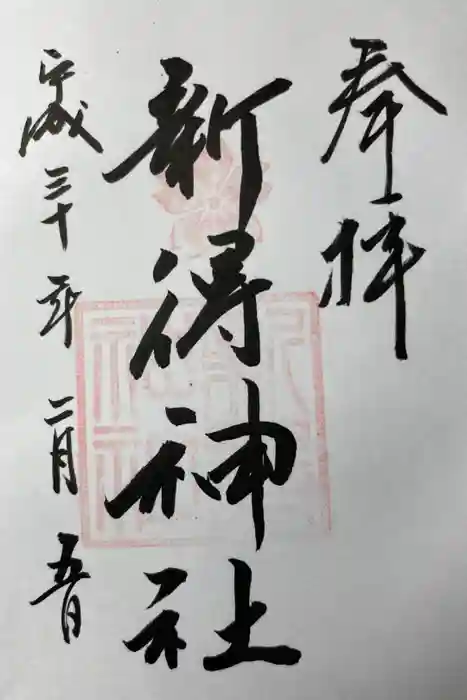 奉拝
新得神社
平成三十年二月五日